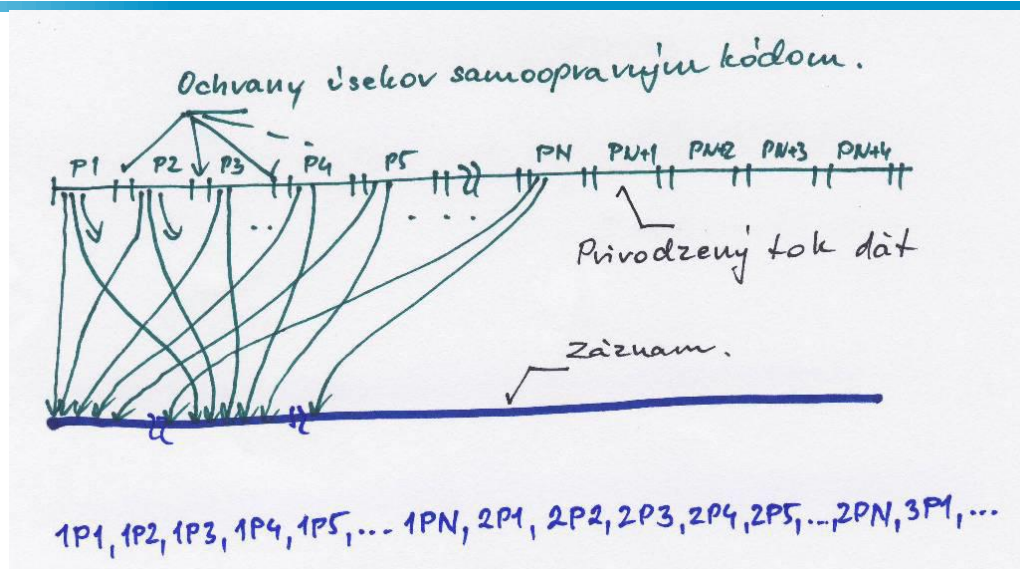 Ochrany úsekov samoopravným kódom.
P1 P2 P3 P4 P5 PN PN+1 PN+2 PN+3 PN+4
Prirodzený tok dát
Záznam.
1P1, 1P2, 1P3, 1P4, 1P5, ... 1PN, 2P1, 2P2, 2P3, 2P4, 2P5, ..., 2PN, 3P1, ...